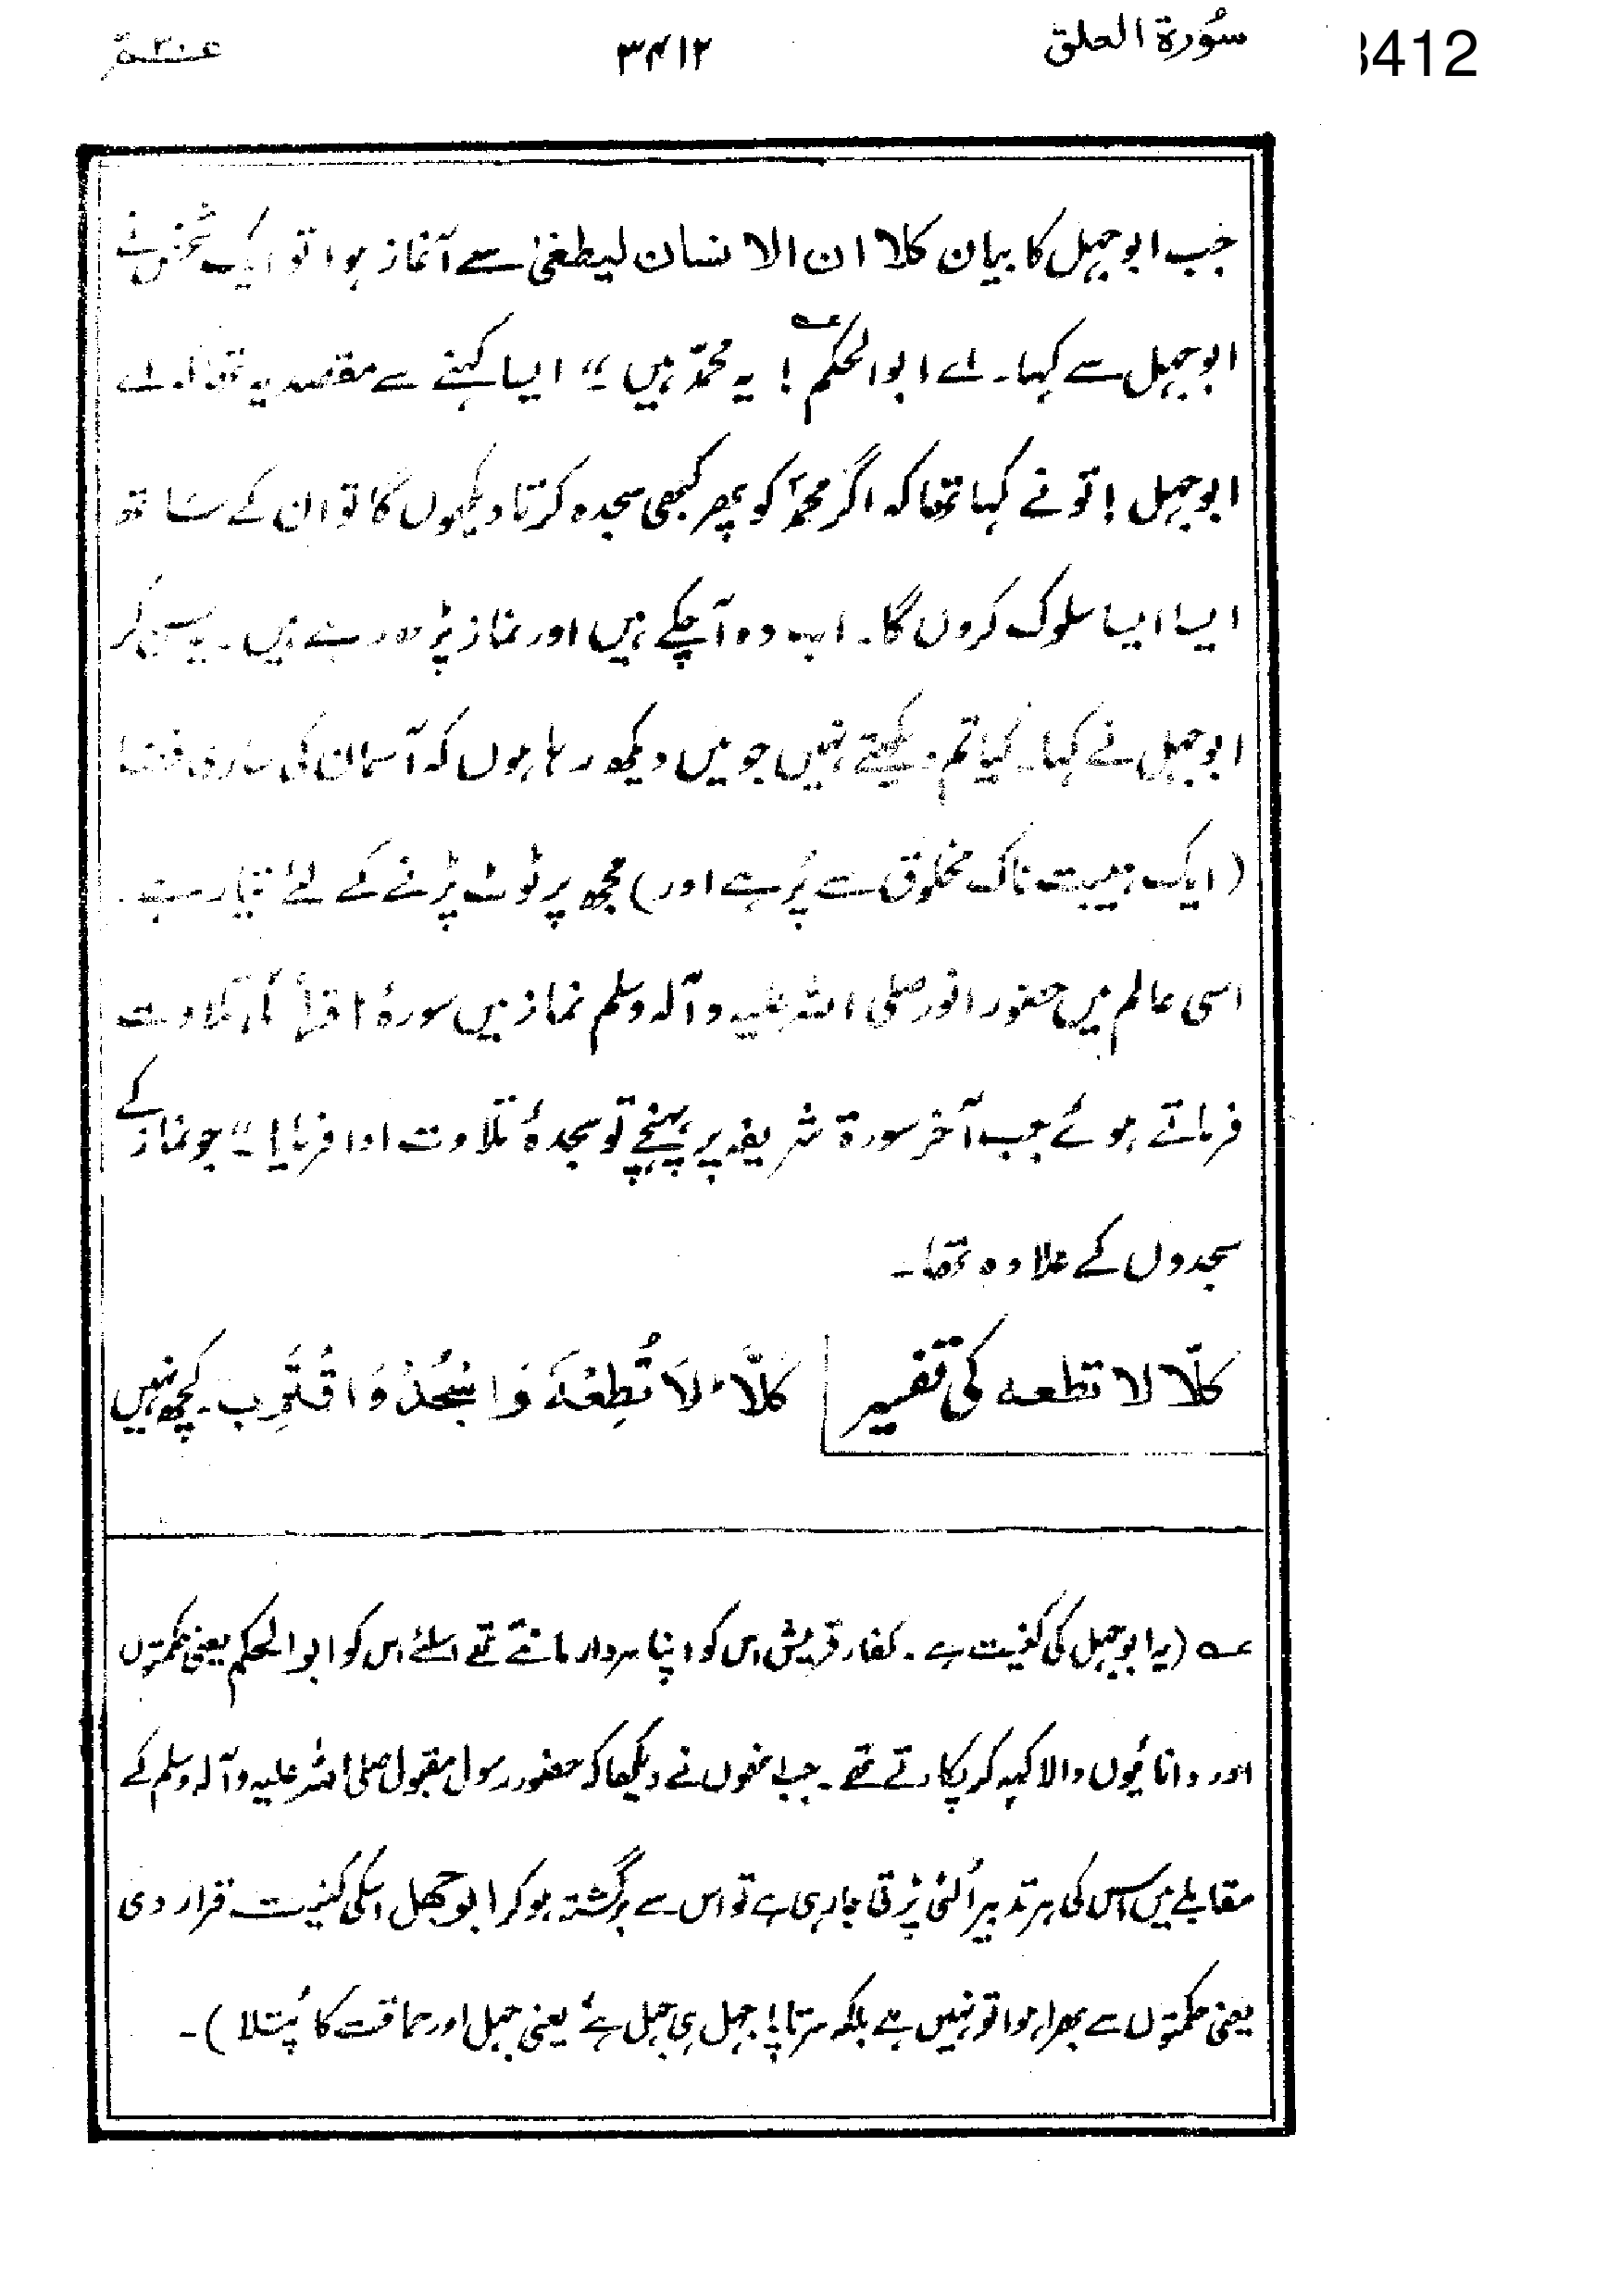 سُورة العلق ۳۴۱۲ عمّ ۳۰
3412
جب ابوجہل کا بیان کلا ان الانسان لیطغیٰ سے آغاز ہوا تو ایک شخص نے
ابوجہل سے کہا۔ اے ابوالحکم عہ ! یہ محمدؐ ہیں ״ ایسا کہنے سے مقصد یہ تھا کہ اے
ابوجہل ! تو نے کہا تھا کہ اگر محمدؐ کو پھر کبھی سجدہ کرتا دیکھوں گا تو ان کے ساتھ
ایسا ایسا سلوک کروں گا۔ اب وہ آچکے ہیں اور نماز پڑھ رہے ہیں۔ یہ سن کر
ابوجہل نے کہا۔ کیا تم دیکھتے نہیں جو میں دیکھ رہا ہوں کہ آسمان کی ساری فضا
(ایک ہیبت ناک مخلوق سے پُر ہے اور) مجھ پر ٹوٹ پڑنے کے لئے تیار ہے۔
اسی عالم میں حضور انور صلی اللہ علیہ وآلہ وسلم نماز میں سورۂ اقرأ کی تلاوت
فرماتے ہوئے جب آخر سورۃ شریفہ پر پہنچے تو سجدۂ تلاوت ادا فرمایا ״ جو نماز کے
سجدوں کے علاوہ تھا۔
کلّا لا تطعہ کی تفسیر
کَلَّا ؕ لَا تُطِعْهُ وَاسْجُدْ وَاقْتَرِب۔ کچھ نہیں
عہ (یہ ابوجہل کی کنیت ہے۔ کفار قریش اس کو اپنا سردار مانتے تھے اسلئے اس کو ابوالحکم یعنی حکمتوں
اور دانائیوں والا کہہ کر پکارتے تھے۔ جب انھوں نے دیکھا کہ حضور رسول مقبول صلی اللہ علیہ وآلہ وسلم کے
مقابلے میں اس کی ہر تدبیر اُلٹی پڑتی جا رہی ہے تو اس سے برگشتہ ہو کر ابوجھل اسکی کنیت قرار دی
یعنی حکمتوں سے بھرا ہوا تو نہیں ہے بلکہ سرتاپا جہل ہی جہل ہے یعنی جہل اور حماقت کا پُتلا)۔